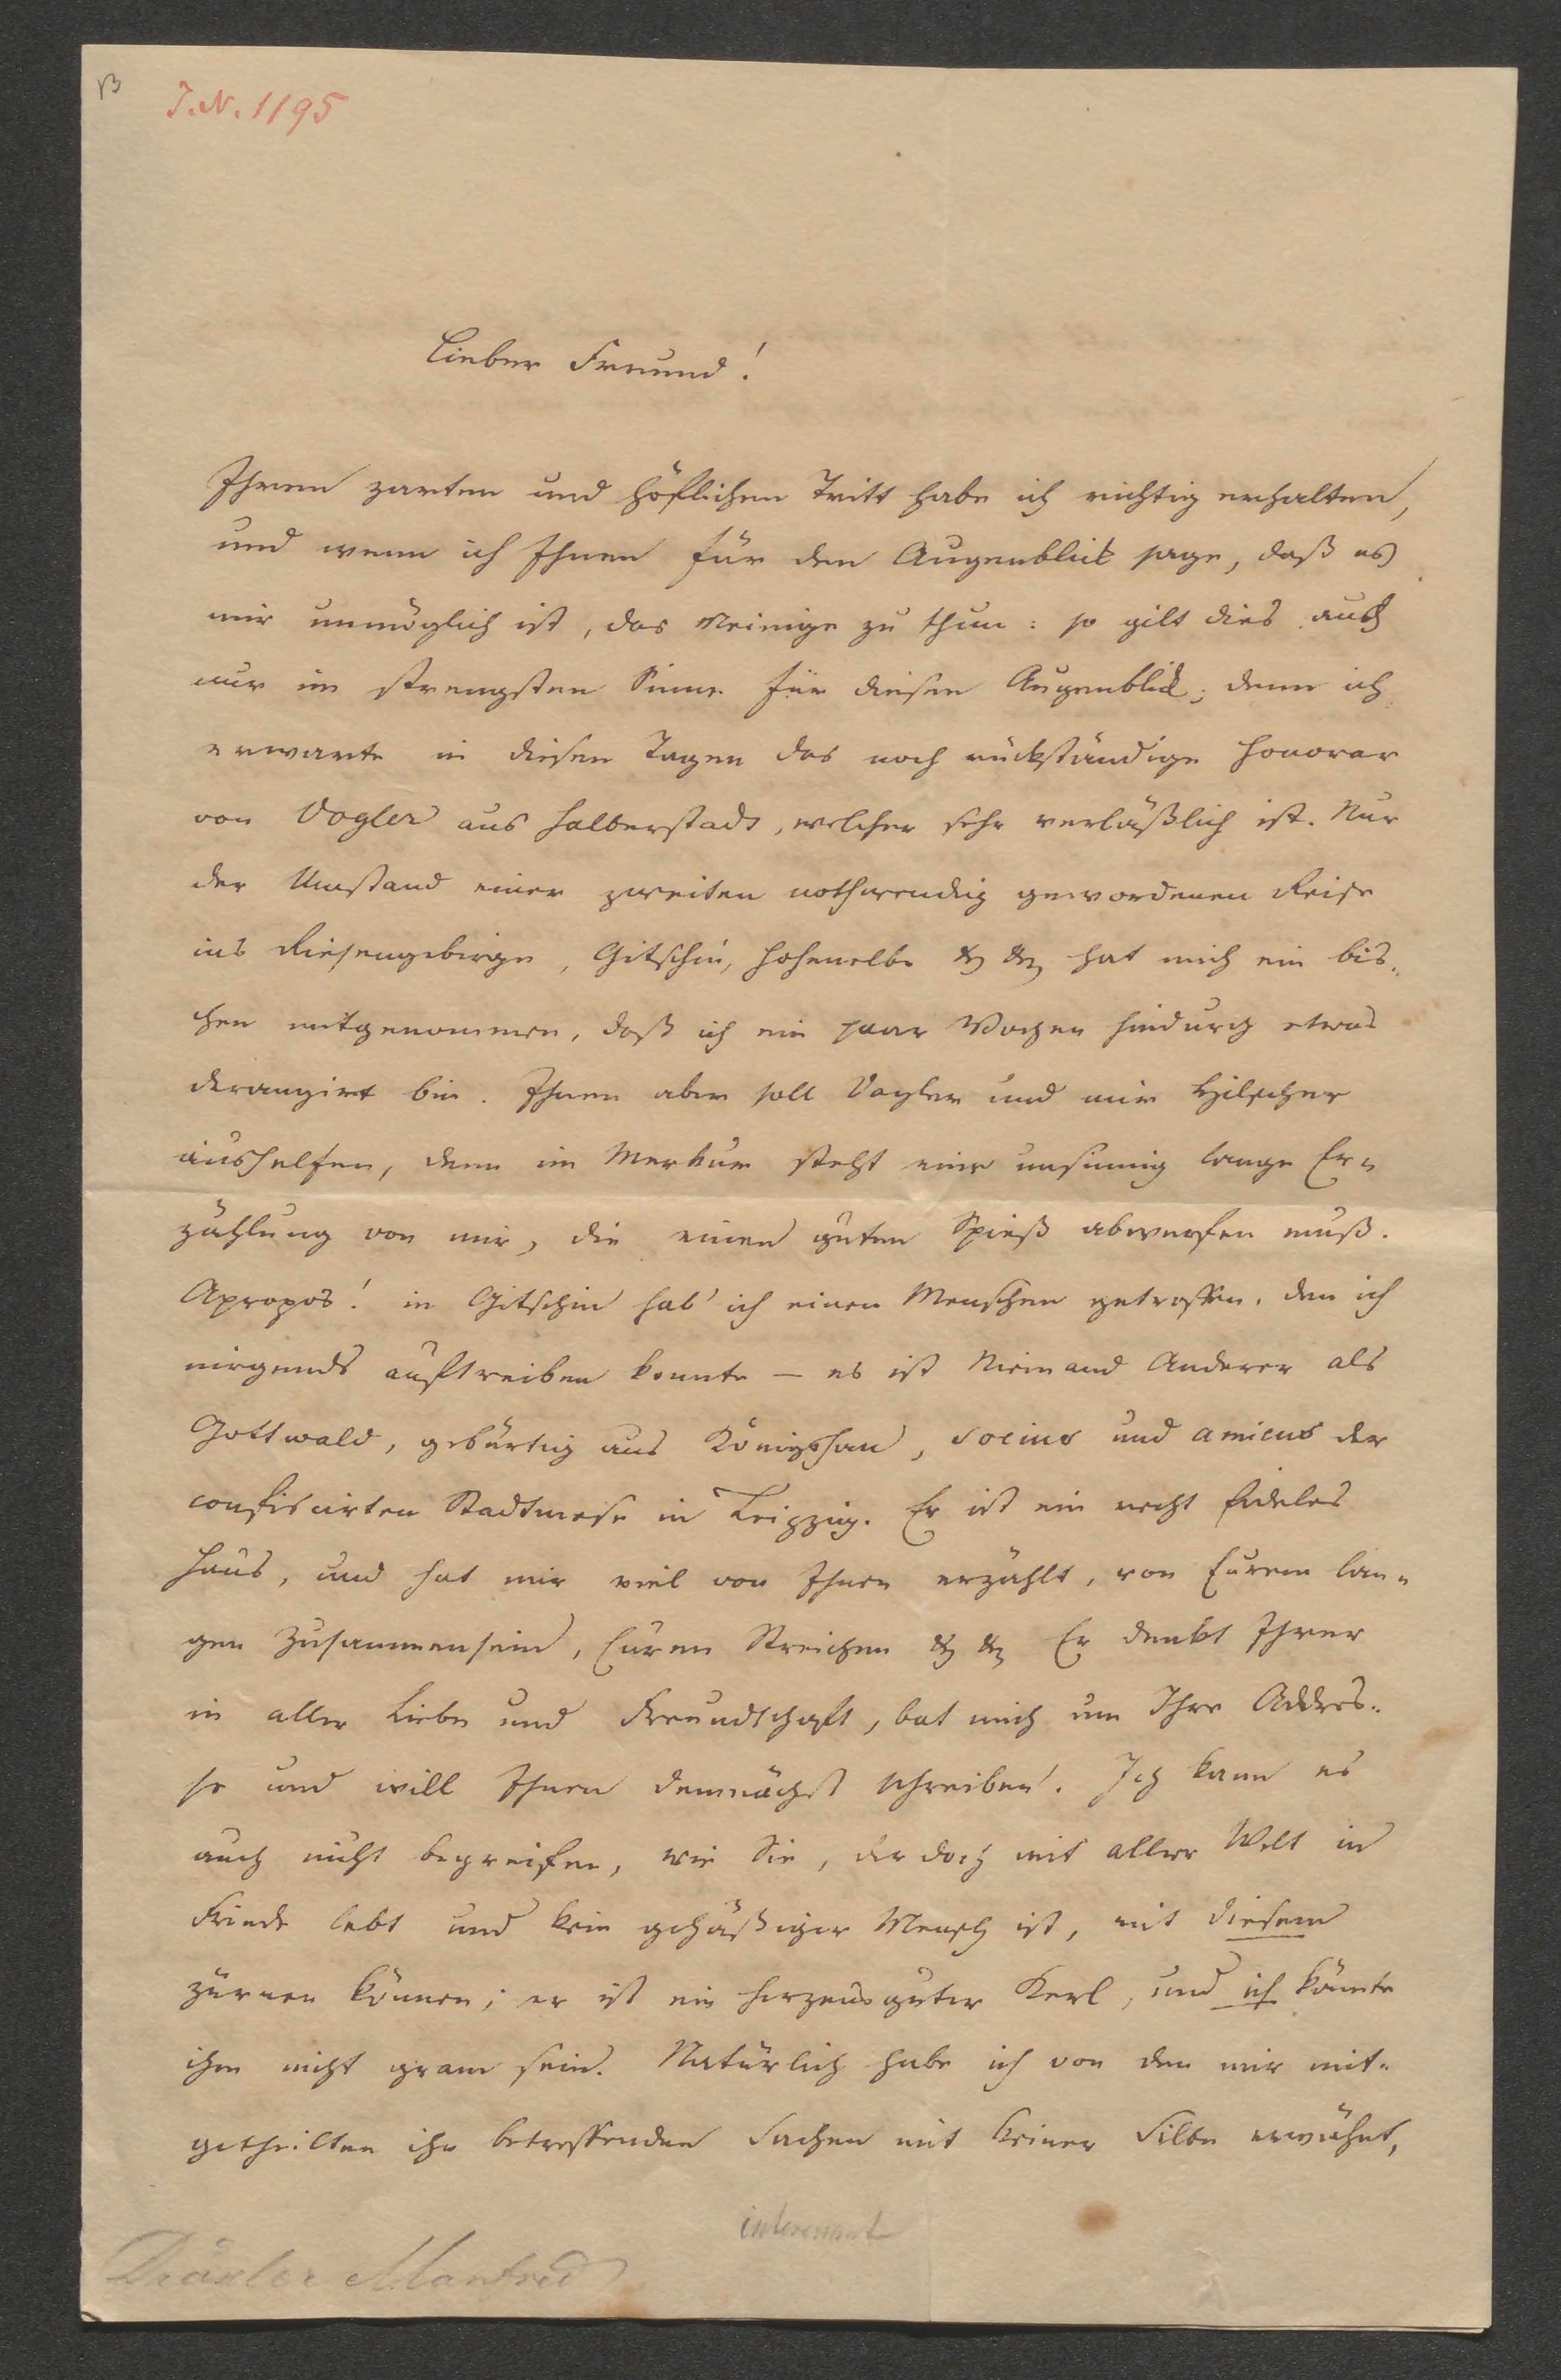 I.N. 1195
Lieber Freund!
Ihren zarten und höflichen Tritt habe ich richtig erhalten,
und wenn ich Ihnen für den Augenblick sage, daß es
mir unmöglich ist, das Meinige zu thun: so gilt dies auch
nur im strengsten Sinne für diesen Augenblick; denn ich
erwarte in diesen Tagen das noch rückständige Honorar
von Vogler aus Halberstadt, welcher sehr verläßlich ist. Nur
der Umstand einer zweiten nothwendig gewordenen Reise
ins Riesengebirge, Gitschin, Hohenelbe & & hat mich ein bis-
chen mitgenommen, daß ich ein paar Wochen hindurch etwas
derangirt bin. Ihnen aber soll Vogler und mir Hilscher
aushelfen, denn im Merkur steht eine unsinnig lange Er-
zählung von mir, die einen guten Spieß abwerfen muß.
Apropos! in Gitschin hab' ich einen Menschen getroffen, den ich
nirgends auftreiben konnte – es ist Niemand Anderer als
Gottwald, gebürtig aus Königshan, socius und amicus der
confiscirten Stadtwese in Leipzig. Er ist ein recht fideles
Haus, und hat mir viel von Ihnen erzählt, von Eurem lan-
gen Zusammensein, Euren Streichen & & Er denkt Ihrer
in aller Liebe und Freundschaft, bat mich um Ihre Addres-
se und will Ihnen demnächst schreiben. Ich kann es
auch nicht begreifen, wie Sie, der doch mit aller Welt in
Friede lebt und kein gehäßiger Mensch ist, mit diesem
zürnen können; er ist ein herzensguter Kerl, und ich könnte
ihm nicht gram sein. Natürlich habe ich von den mir mit-
getheilten ihn betreffenden Sachen mit keiner Silbe erwähnt,
interessant
Dräxler Manfred